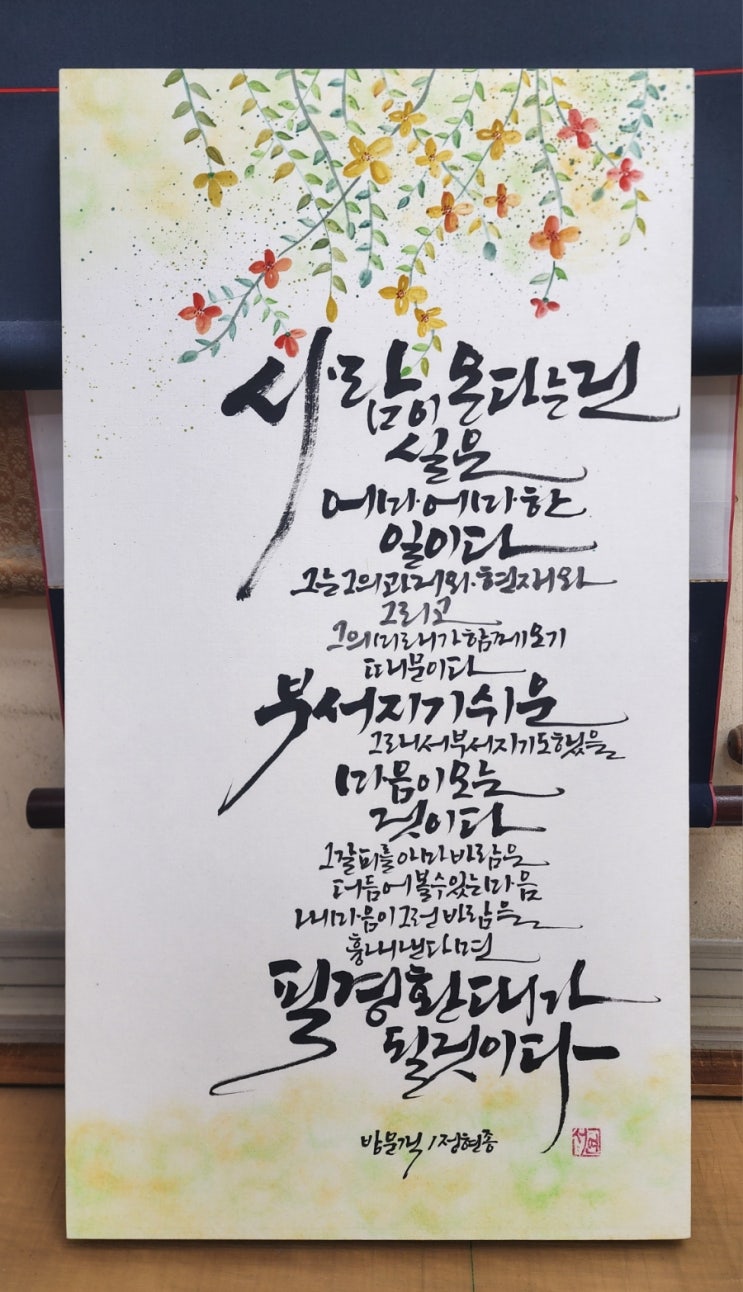 사람이 온다는 건
실은
어마어마한
일이다
그는 그의 과거와 현재와
그리고
그의 미래가 함께 오기
때문이다
부서지기 쉬운
그래서 부서지기도 했을
마음이 오는
것이다
그 갈피를 아마 바람은
더듬어 볼 수 있는 마음
내 마음이 그런 바람을
흉내낸다면
필경 환대가
될 것이다
방문객 / 정현종